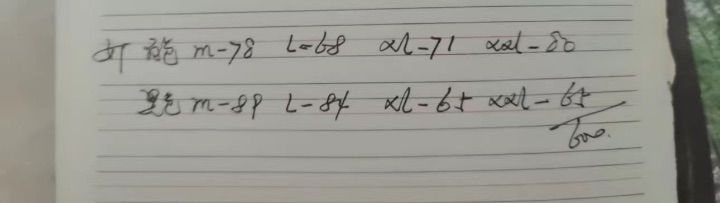 m-78 L-68 XL-71 XXL-80
黑色 m-89 L-84 XL-65 XXL-65
600.